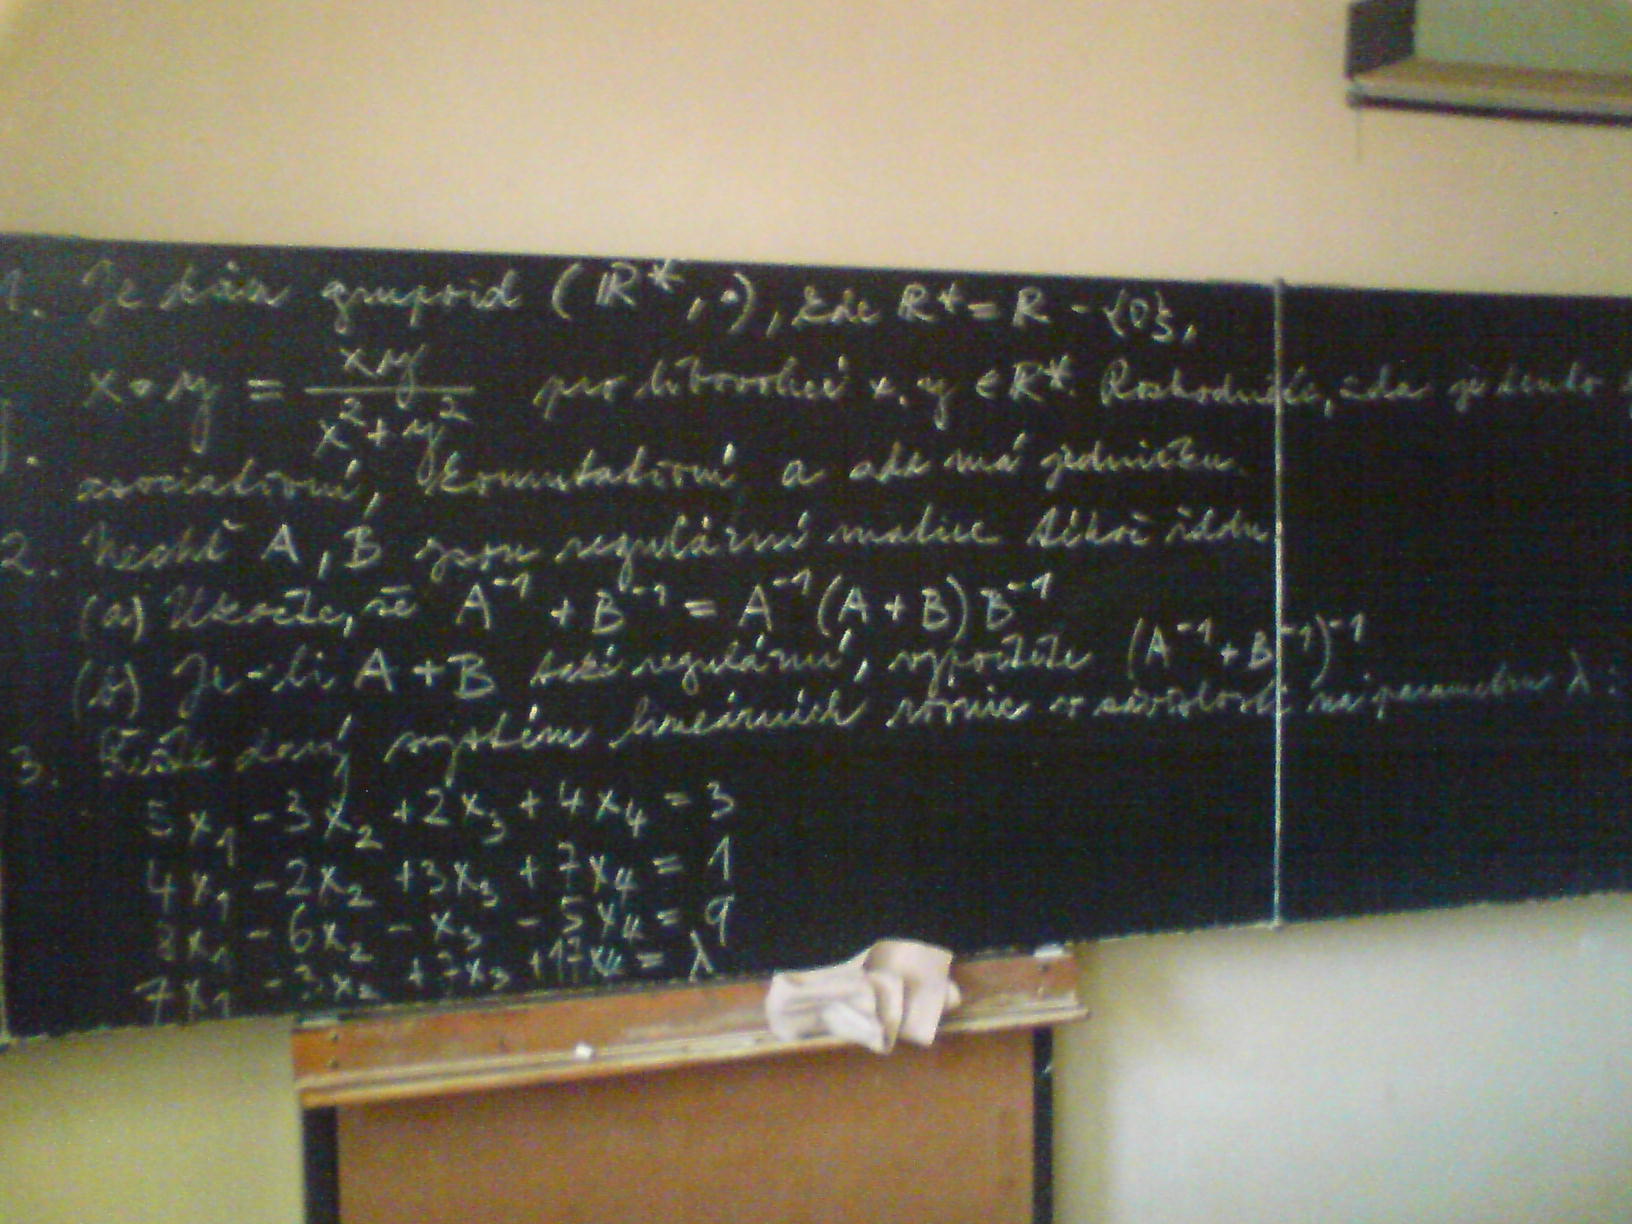 1. Je dán grupoid (R*, •), kde R* = R - {0},
x • y = xy / (x² + y²) pro libovolné x, y ∈ R*. Rozhodněte, zda je tento
asociativní, komutativní a zda má jedničku.
2. Nechť A, B jsou regulární matice téhož řádu
(a) Ukažte, že A⁻¹ + B⁻¹ = A⁻¹(A + B)B⁻¹
(b) Je-li A + B též regulární, vypočtěte (A⁻¹ + B⁻¹)⁻¹
3. Řešte daný systém lineárních rovnic v závislosti na parametru λ:
5x₁ - 3x₂ + 2x₃ + 4x₄ = 3
4x₁ - 2x₂ + 3x₃ + 7x₄ = 1
8x₁ - 6x₂ - x₃ - 5x₄ = 9
7x₁ - 3x₂ + 7x₃ + 17x₄ = λ